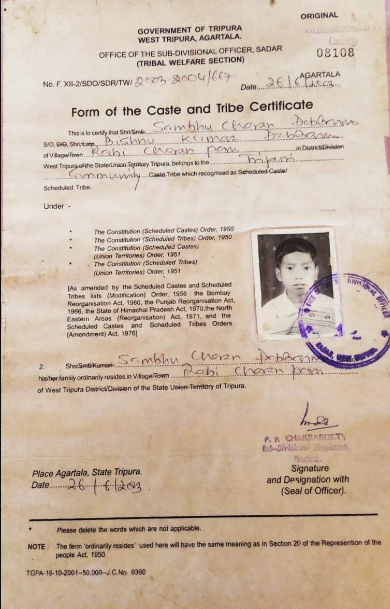 ORIGINAL
GOVERNMENT OF TRIPURA
WEST TRIPURA, AGARTALA.
OFFICE OF THE SUB-DIVISIONAL OFFICER, SADAR
(TRIBAL WELFARE SECTION)
08108
No. F. XII-2/SDO/SDR/TW/ 2003-2004/667
AGARTALA
Date 26/6/2003
Form of the Caste and Tribe Certificate
This is to certify that Shri/Smt. Sambhu Charan DebBarma
S/O, D/O, Shri/Late Bishnu Kumar DebBarma
of Village/Town Rabi Charan para in District/Division
West Tripura of the State/Union Territory Tripura, belongs to the
Community Caste Tribe which recognised as Scheduled Caste/
Scheduled Tribe.
Under -
* The Constitution (Scheduled Castes) Order, 1950
* The Constitution (Scheduled Tribes) Order, 1950
* The Constitution (Scheduled Castes)
(Union Territories) Order, 1951
* The Constitution (Scheduled Tribes)
(Union Territories) Order, 1951
[As amended by the Scheduled Castes and Scheduled
Tribes lists (Modification) Order, 1956 the Bombay
Reorganisation Act, 1960, the Punjab Reorganisation Act,
1966, the State of Himachal Pradesh Act, 1970, the North
Eastern Areas (Reorganisation) Act, 1971, and the
Scheduled Castes and Scheduled Tribes Orders
(Amendment) Act, 1976]
2. Shri/Smti/Kumari Sambhu Charan DebBarma
his/her family ordinarily resides in Village/Town Rabi Charan para
of West Tripura District/Division of the State Union Territory of Tripura.
P. B. CHAKRABORTY
Sub-Divisional Magistrate
Sadar.
Place Agartala, State Tripura.
Date 26/6/2003
Signature
and Designation with
(Seal of Officer).
* Please delete the words which are not applicable.
NOTE : The term 'ordinarily resides' used here will have the same meaning as in Section 20 of the Representation of the
people Act, 1950.
TGPA-16-10-2001-50,000-J.C.No. 9360